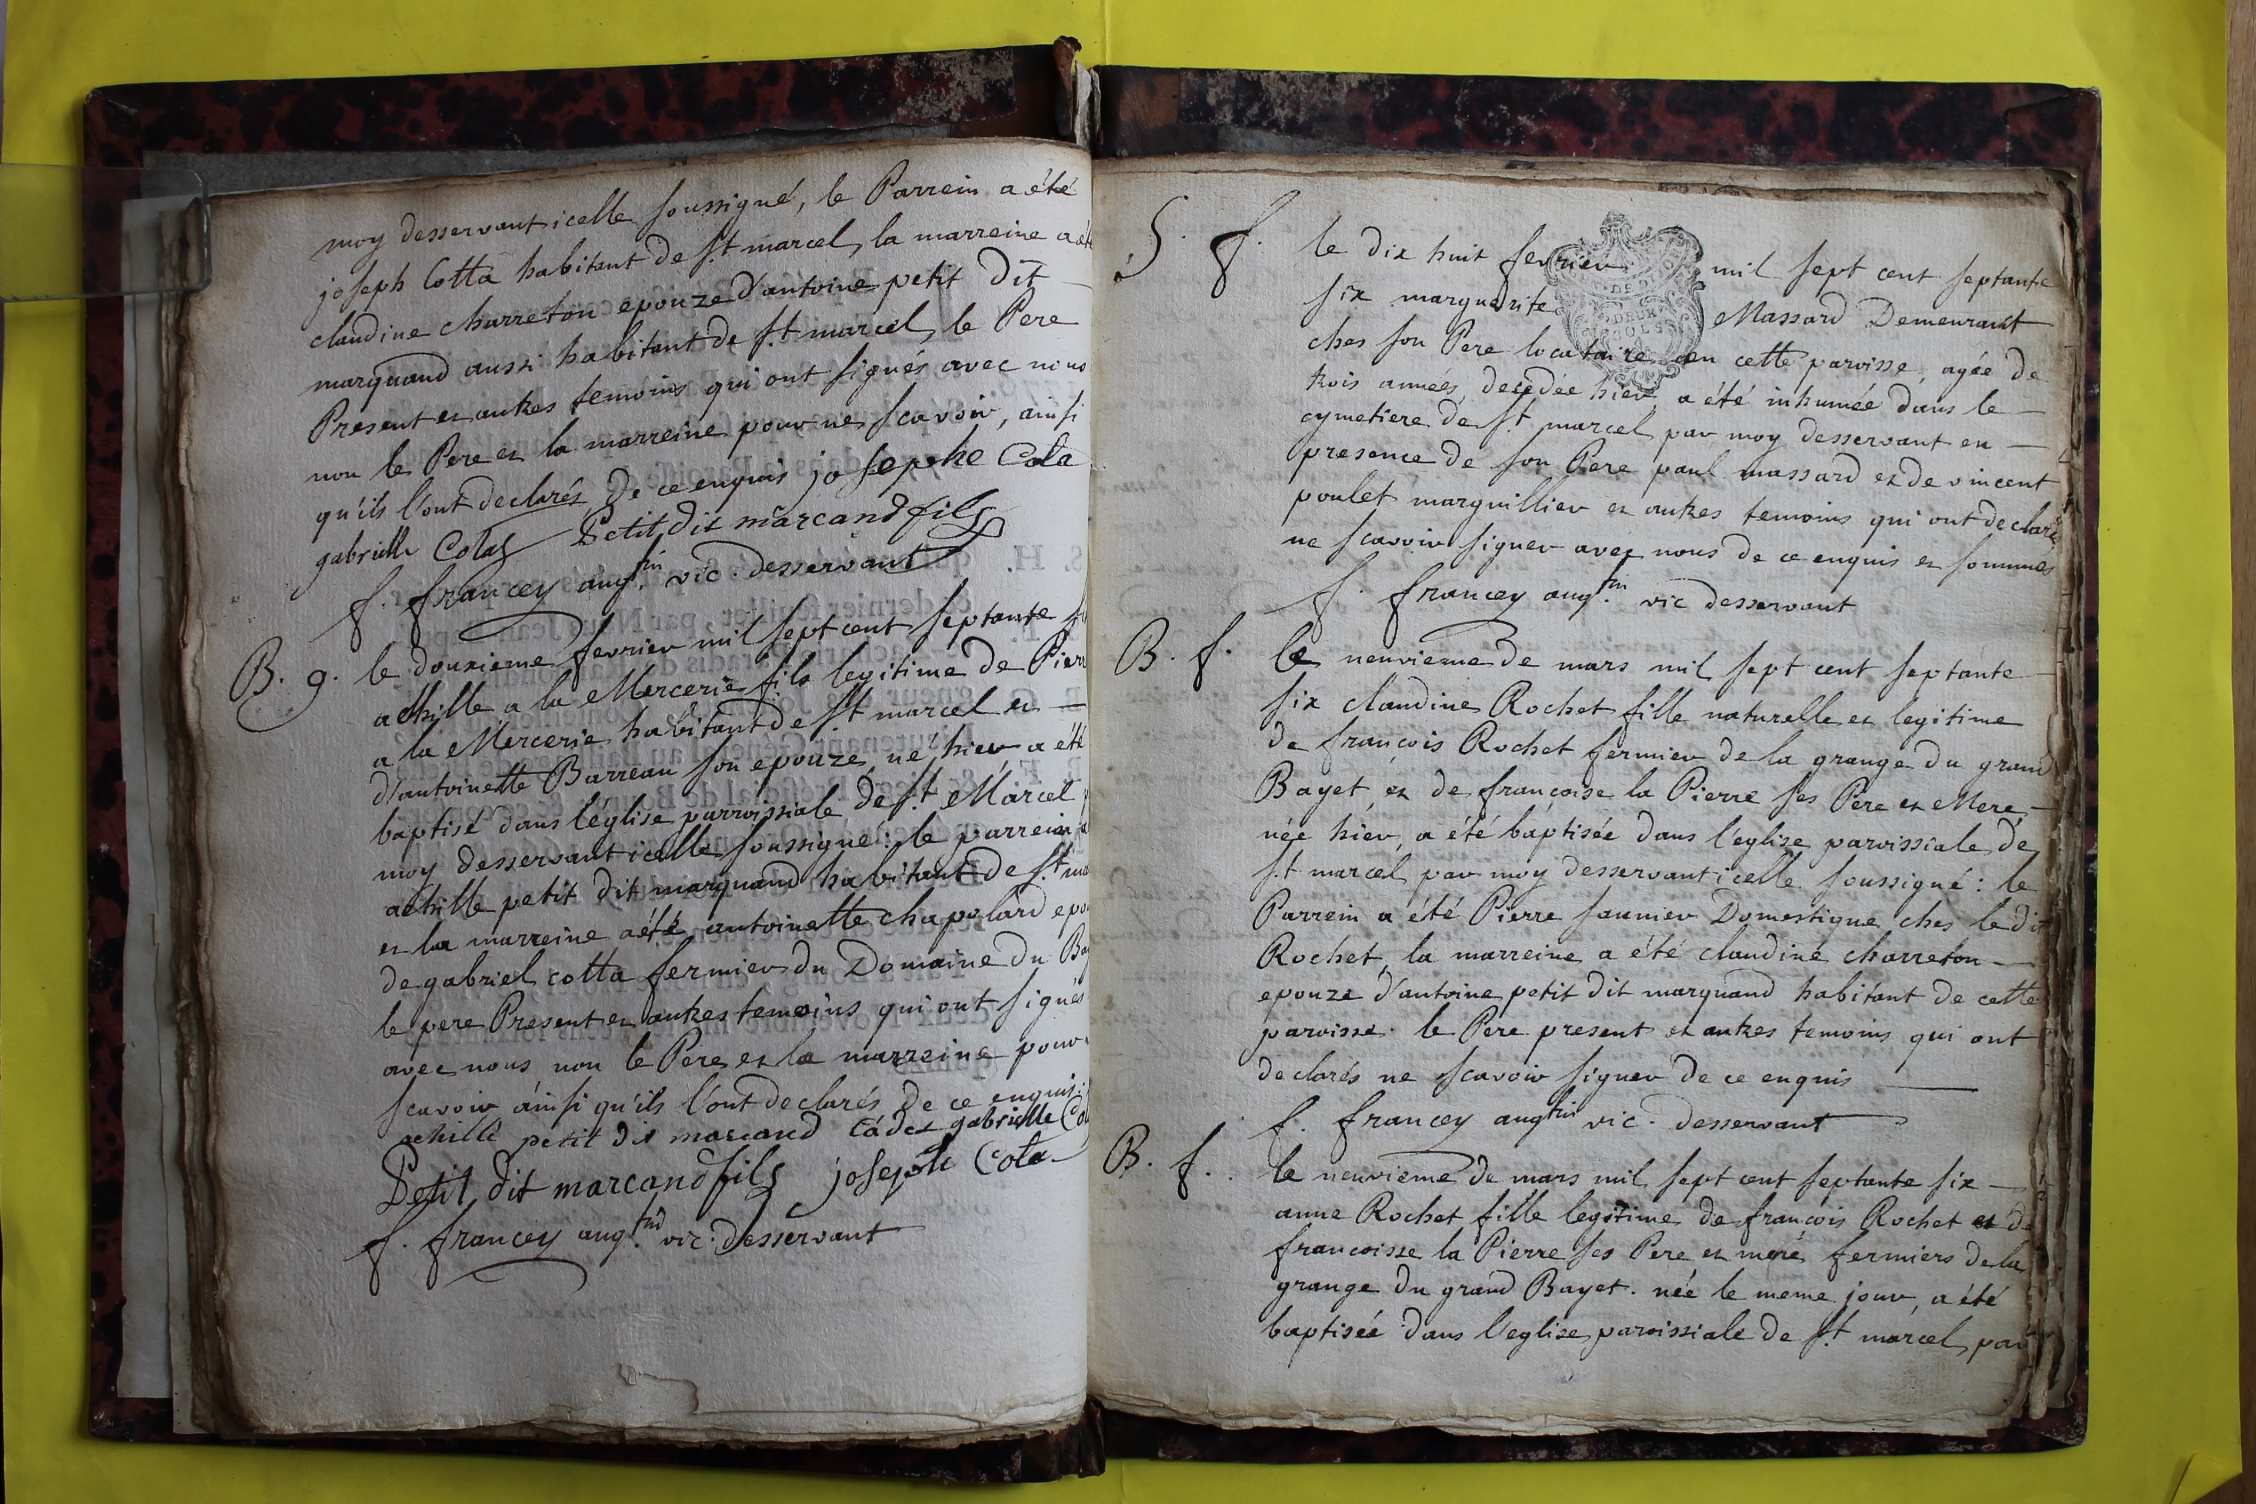 moy desservant icelle soussigné, le Parrein a été
joseph Cotta habitant de s.t marcel, la marreine a été
claudine charreton epouze d'antoine petit Dit
marquand aussi habitant de s.t marcel, le Pere
Present et autres temoins qui ont signés avec nous
non le Pere et la marreine pour ne scavoir, ainsi
qu'ils l'ont declarés de ce enquis josephe Cola
gabrielle Colas Petit dit marcand fils
f. francey aug.tin vic. desservant
B. g. le douzieme fevrier mil sept cent septante
achille a la Mercerie fils legitime de Pierre
a la Mercerie habitant de s.t marcel et
d'antoinette Barreau son epouze, né hier a été
baptisé dans l'église parroissiale de s.t Marcel
moy desservant icelle soussigné: le parrein
achille petit dit marquand habitant de s.t
et la marreine a été antoinette chapolard
de gabriel cotta fermier du Domaine du
le pere Present et autres temoins qui ont signés
avec nous non le Pere et la marreine pour
scavoir ainsi qu'ils l'ont declarés de ce enquis
achille petit dit marcand cadet gabrielle
Petit dit marcand fils joseph Cola
f. francey aug.tin vic. desservant
S. f. le dix huit fevrier mil sept cent septante
DEUX
SOLS
six marguerite Massard Demeurant
ches son Pere locataire en cette paroisse, agée de
trois années, decedée hier, a été inhumée dans le
cymetiere de s.t marcel par moy desservant en
presence de son Pere paul massard et de vincent
poulet marguillier et autres temoins qui ont declarés
ne scavoir signer avec nous de ce enquis et sommés
f. francey aug.tin vic desservant
B. f. le neuvieme de mars mil sept cent septante
six claudine Rochet fille naturelle et legitime
de francois Rochet fermier de la grange du grand
Bayet, et de françoise la Pierre ses Pere et Mere,
née hier, a été baptisée dans l'eglise paroissiale de
s.t marcel par moy desservant icelle soussigné: le
Parrein a été Pierre saunier Domestique ches le dit
Rochet, la marreine a été claudine charreton
epouze d'antoine petit dit marquand habitant de cette
paroisse. le Pere present et autres temoins qui ont
declarés ne scavoir signer de ce enquis
f. francey augtin vic. desservant
B. f. le neuvieme de mars mil sept cent septante six
anne Rochet fille legitime de francois Rochet et de
francoisse la Pierre ses Pere et meré fermiers de la
grange du grand Bayet. née le meme jour, a été
baptisée dans l'eglise paroissiale de s.t marcel, par